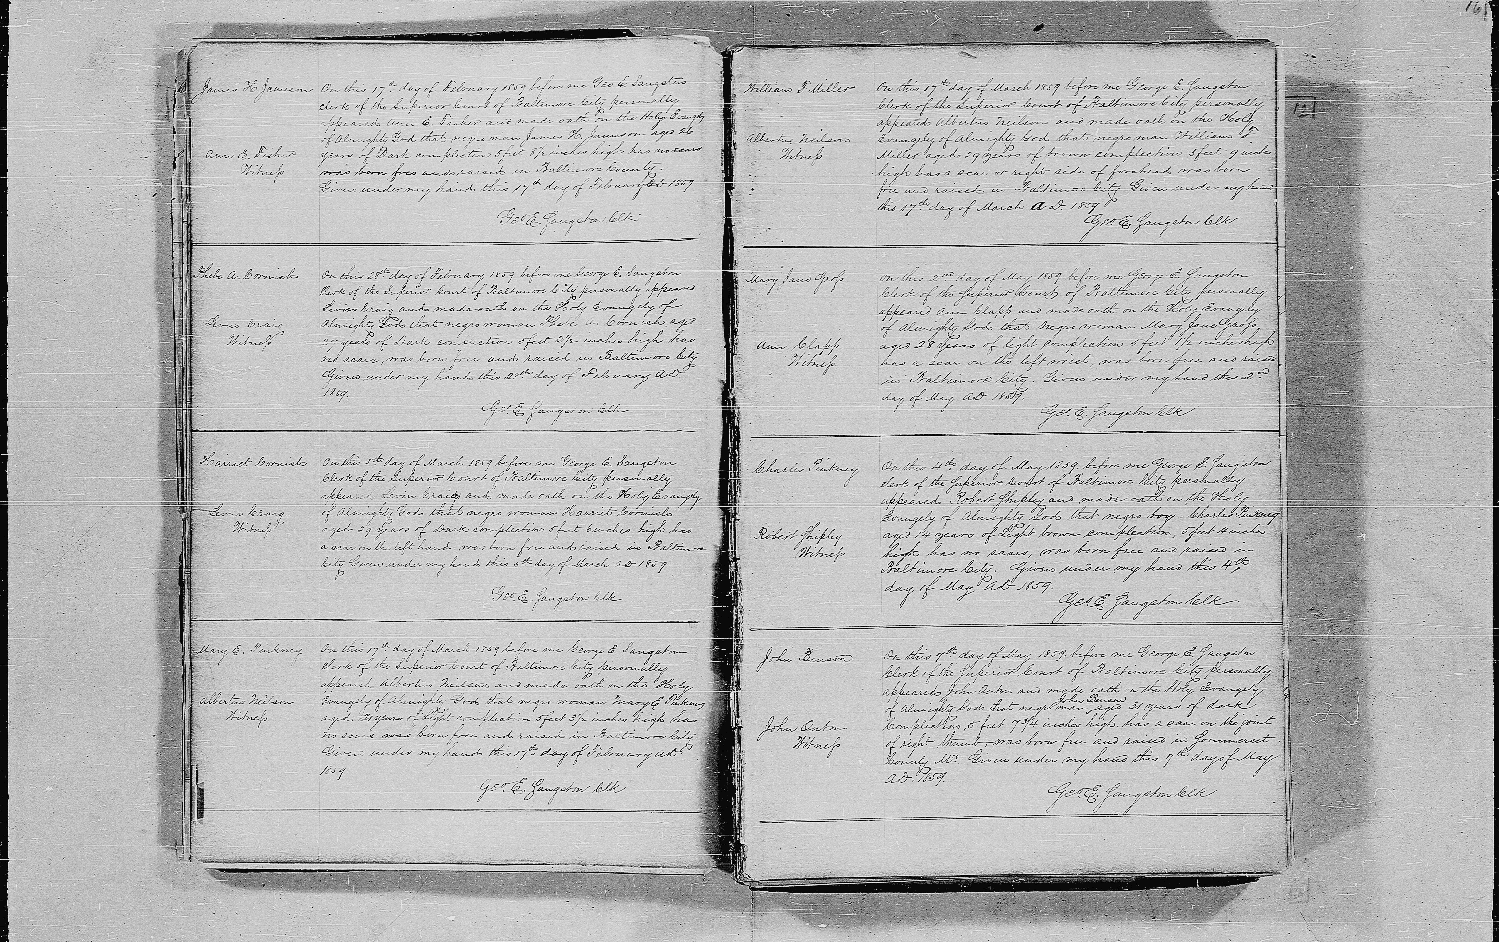 James H Jamison
On this 17th day of February 1859 before me Geo E Sangston
Clerk of the Superior Court of Baltimore City personally
appeared Ann E. Fisher and made oath on the Holy Evangely
of Almighty God that negro man James H. Jamison aged 26
Ann E. Fisher
years of Dark complection 5 feet 8½ inches high has no scars
Witness
was born free and raised in Baltimore County
Given under my hand this 17th day of February AD 1859
Geo E. Sangston Clk
Phebe A. Cornish
On this 28th day of February 1859 before me George E. Sangston
Clerk of the Superior Court of Baltimore City personally appeared
Levin Craig and made oath on the Holy Evangely of
Levin Craig
Almighty God that negro woman Phebe A. Cornish aged
Witness
years of Dark complection 5 feet 2½ inches high has
no scars, was born free and raised in Baltimore City
Given under my hand this 28th day of February AD
1859
Geo. E. Sangston Clk
Harriet Cornish
On this 5th day of March 1859 before me George E. Sangston
Clerk of the Superior Court of Baltimore City personally
appeared Levin Craig and made oath on the Holy Evangely
Levin Craig
of Almighty God that negro woman Harriet Cornish
Witness
aged 29 years of Dark complection 5 feet 2 inches high has
a scar on the left hand was born free and raised in Baltimore
City Given under my hand this 5th day of March AD 1859
Geo E Sangston Clk
Mary E. Pinkney
On this 17th day of March 1859 before me George E. Sangston
Clerk of the Superior Court of Baltimore City personally
appeared Albertus Neilson and made oath on the Holy
Albertus Neilson
Evangely of Almighty God that negro woman Mary E Pinkney
Witness
aged years of Light complection 5 feet 3½ inches high has
no scars was born free and raised in Baltimore City
Given under my hand this 17th day of February AD
1859
Geo. E. Sangston Clk
William T. Miller
On this 17th day of March 1859 before me George E. Sangston
Clerk of the Superior Court of Baltimore City personally
appeared Albertus Neilson and made oath on the Holy
Albertus Neilson
Evangely of Almighty God that negro man William T.
Witness
Miller aged 29 years of brown complection 5 feet 9 inches
high has a scar on right side of forehead was born
free and raised in Baltimore City Given under my hand
this 17th day of March A.D. 1859
Geo. E. Sangston Clk
121
Mary Jane Goss
On this 2nd day of May 1859 before me George E. Sangston
Clerk of the Superior Court of Baltimore City personally
appeared Ann Clapp and made oath on the Holy Evangely
of Almighty God that negro woman Mary Jane Goss
Ann Clapp
aged 28 years of light complection 5 feet 1½ inches high
Witness
has a scar on the left wrist was born free and raised
in Baltimore City. Given under my hand this 2nd
day of May AD 1859
Geo. E. Sangston Clk
Charles Pinkney
On this 4th day of May 1859 before me George E. Sangston
Clerk of the Superior Court of Baltimore City personally
appeared Robert Shipley and made oath on the Holy
Evangely of Almighty God that negro boy Charles Pinkney
Robert Shipley
aged 14 years of Light brown complection, 5 feet inches
Witness
high has no scars, was born free and raised in
Baltimore City. Given under my hand this 4th
day of May AD 1859
Geo. E. Sangston Clk
John Benson
On this 9th day of May 1859 before me George E. Sangston
Clerk of the Superior Court of Baltimore City personally
appeared John and made oath on the Holy Evangely
of Almighty God that negro man John Benson, aged 31 years of dark
John
complection, 5 feet 7¾ inches high has a scar on the joint
Witness
of right thumb, was born free and raised in Sommerset
County Md. Given under my hand this 9th day of May
AD 1859.
Geo. E. Sangston Clk